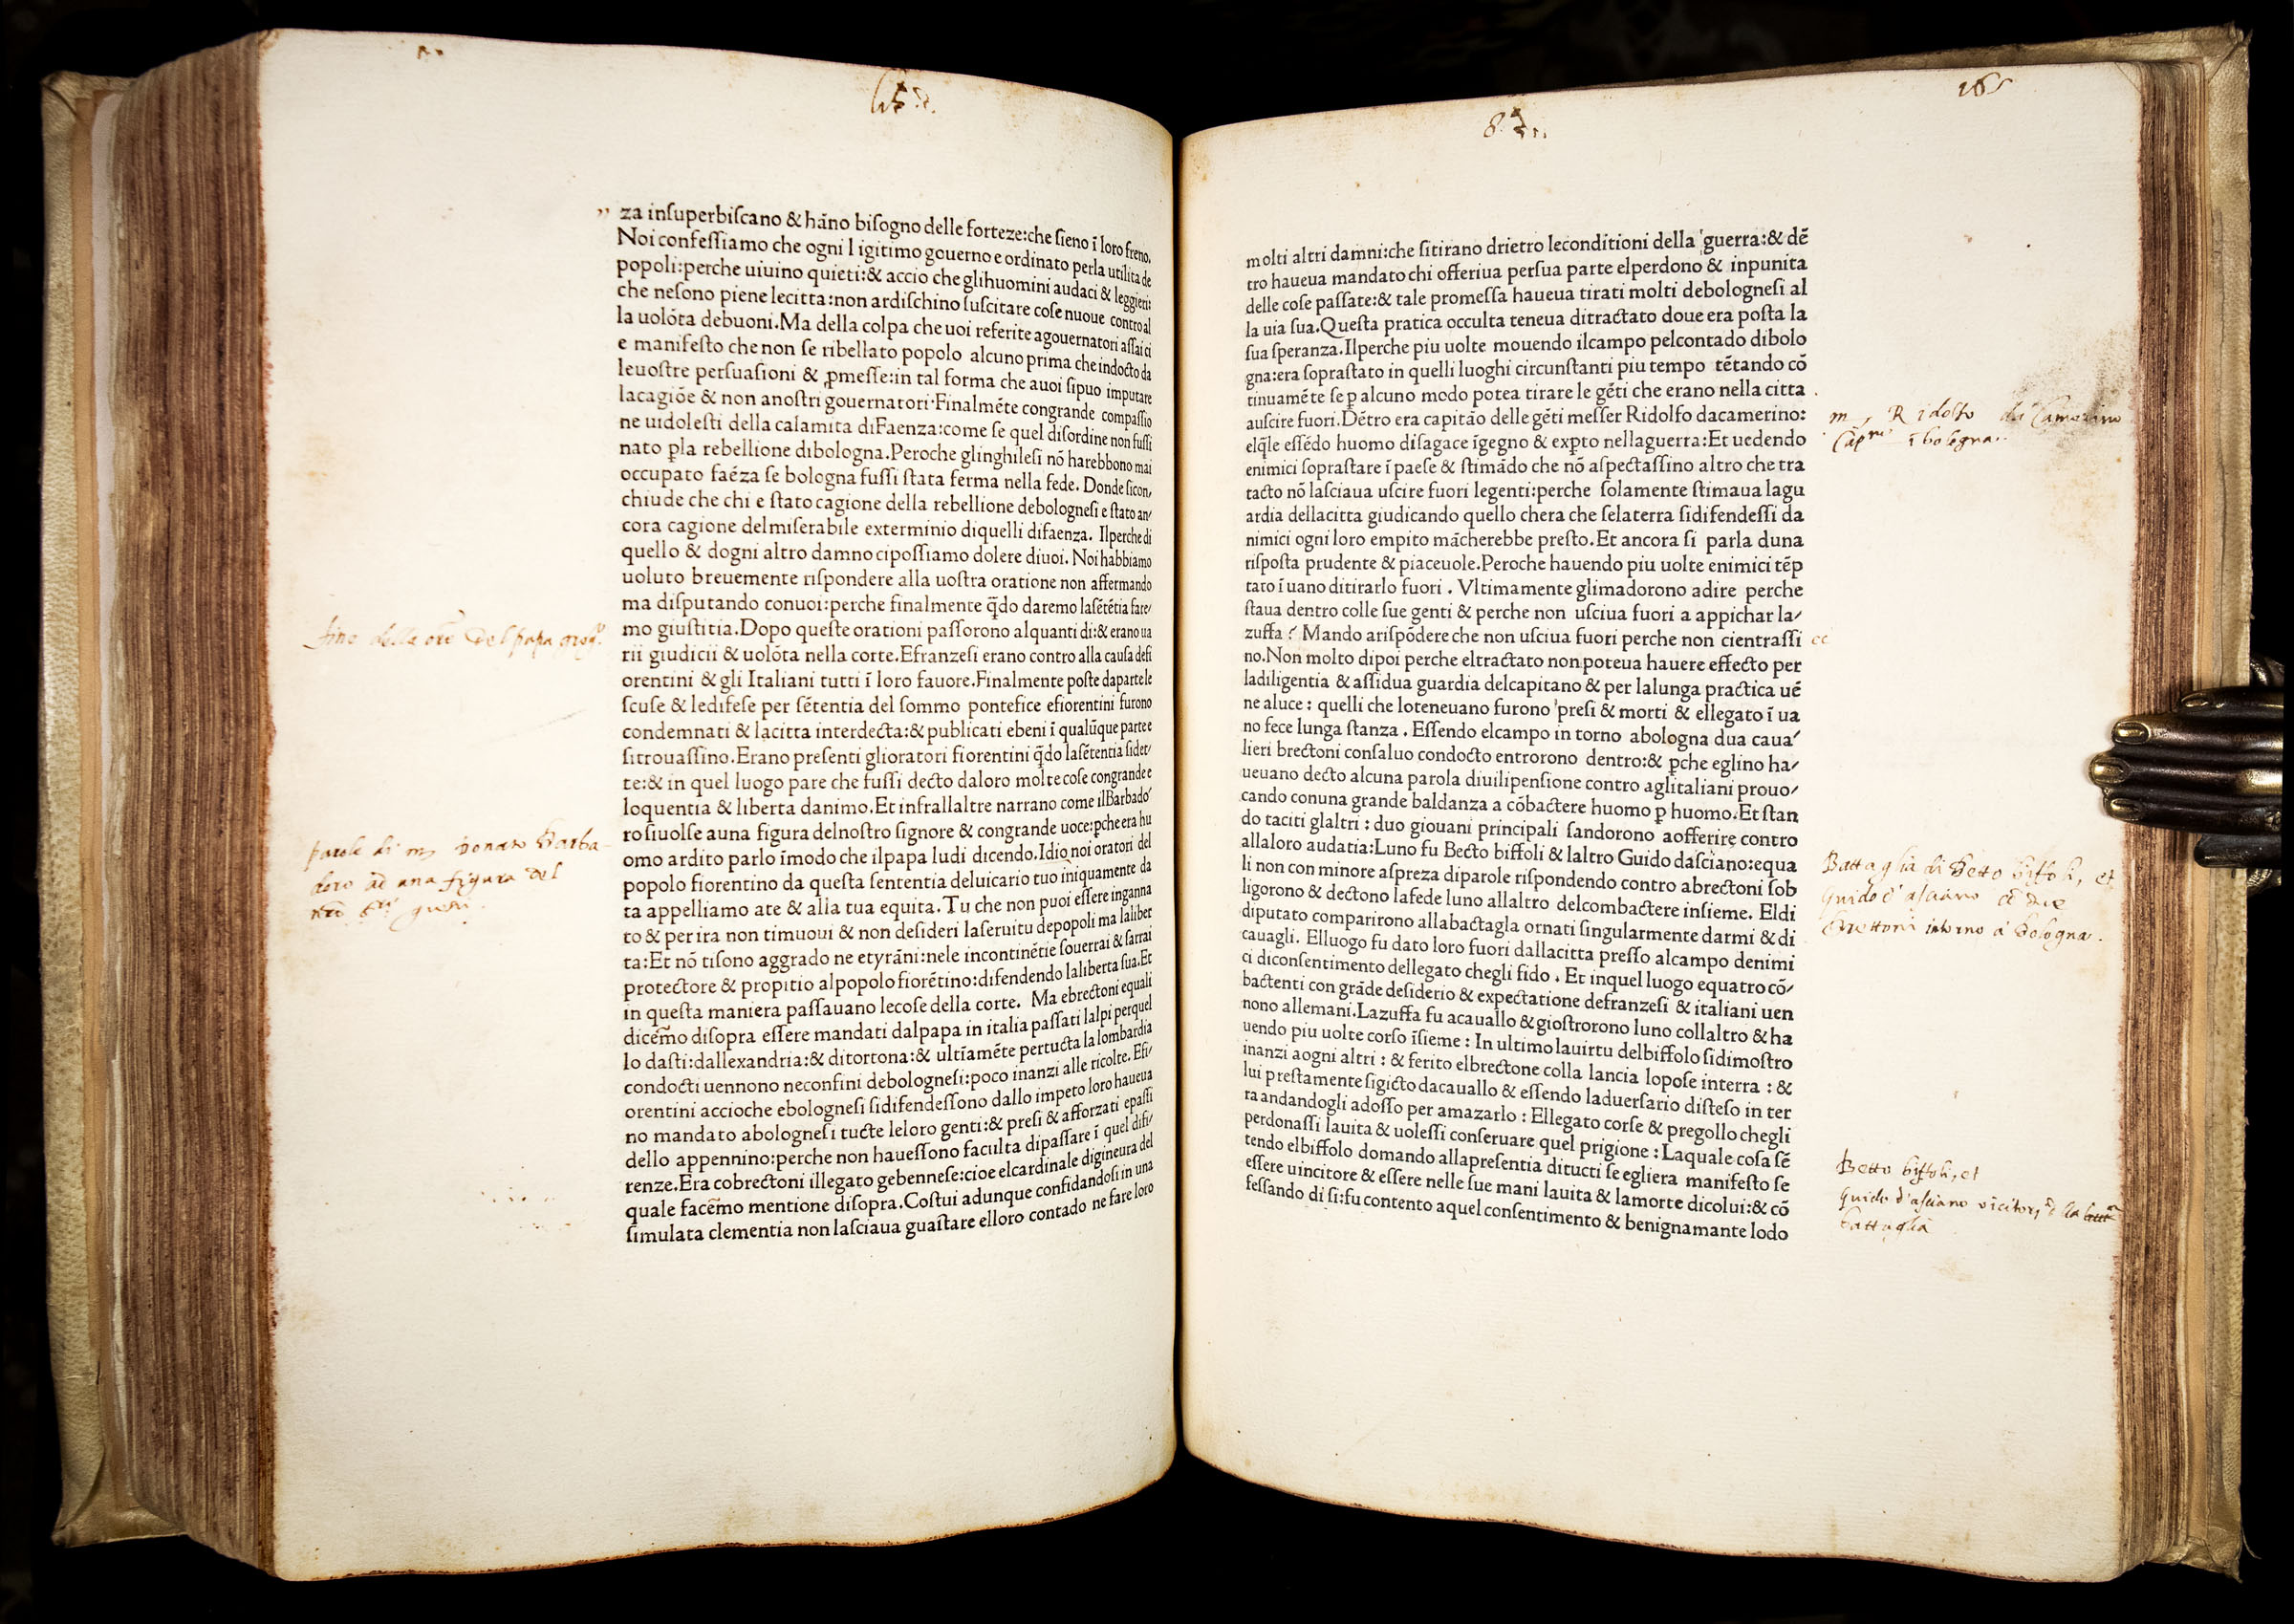 lib. 8.
za inſuperbiſcano & hāno biſogno delle forteze:che ſieno ī loro freno.
Noi confeſſiamo che ogni l igitimo gouerno e ordinato perla utilita de
popoli:perche uiuino quieti:& accio che glihuomini audaci & leggieri:
che neſono piene lecitta:non ardiſchino ſuſcitare coſe nuoue contro al
la uolōta debuoni.Ma della colpa che uoi referite agouernatori aſſai ci
e manifeſto che non ſe ribellato popolo alcuno prima che indocto da
leuoſtre perſuaſioni & ꝓmeſſe:in tal forma che auoi ſipuo imputare
lacagiōe & non anoſtri gouernatori.Finalmēte congrande compaſſio
ne uidoleſti della calamita diFaenza:come ſe quel diſordine non fuſſi
nato ꝑla rebellione dibologna.Peroche glinghileſi nō harebbono mai
occupato faēza ſe bologna fuſſi ſtata ferma nella fede. Donde ſicon/
chiude che chi e ſtato cagione della rebellione debologneſi e ſtato an/
cora cagione delmiſerabile exterminio diquelli difaenza. Ilperche di
quello & dogni altro damno cipoſſiamo dolere diuoi. Noi habbiamo
uoluto breuemente riſpondere alla uoſtra oratione non affermando
ma diſputando conuoi:perche finalmente q̄do daremo laſētētia fare/
mo giuſtitia.Dopo queſte orationi paſſorono alquanti di:& erano ua
rii giudicii & uolōta nella corte.Efranzeſi erano contro alla cauſa defi
orentini & gli Italiani tutti ī loro fauore.Finalmente poſte daparte le
ſcuſe & ledifeſe per ſētentia del ſommo pontefice efiorentini furono
condemnati & lacitta interdecta:& publicati ebeni ī qualūque parte e
ſitrouaſſino.Erano preſenti glioratori fiorentini q̄do laſētentia ſidet/
te:& in quel luogo pare che fuſſi decto daloro molte coſe congrande e
loquentia & liberta danimo.Et infrallaltre narrano come ilBarbado/
ro ſiuolſe auna figura delnoſtro ſignore & congrande uoce:ꝑche era hu
omo ardito parlo īmodo che ilpapa ludi dicendo.Idio noi oratori del
popolo fiorentino da queſta ſententia deluicario tuo iniquamente da
ta appelliamo ate & alla tua equita.Tu che non puoi eſſere inganna
to & per ira non timuoui & non deſideri laſeruitu depopoli ma laliber
ta:Et nō tiſono aggrado ne etyrāni:nele incontinētie ſouerrai & ſarrai
protectore & propitio alpopolo fiorētino:difendendo laliberta ſua.Et
in queſta maniera paſſauano lecoſe della corte. Ma ebrectoni equali
dicemo diſopra eſſere mandati dalpapa in italia paſſati lalpi perquel
lo daſti:dallexandria:& ditortona:& ultīamēte pertucta la lombardia
condocti uennono neconfini debologneſi:poco inanzi alle ricolte. Efi/
orentini accioche ebologneſi ſidifendeſſono dallo impeto loro haueua
no mandato abologneſi tucte leloro genti:& preſi & afforzati epaſſi
dello appennino:perche non haueſſono faculta dipaſſare ī quel difi/
renze.Era cobrectoni illegato gebenneſe:cioe elcardinale digineura del
quale facemo mentione diſopra.Coſtui adunque confidandoſi in una
ſimulata clementia non laſciaua guaſtare elloro contado ne fare loro
fine della orē del papa greg.
parole di m. Donato Barba-
doro ad una figura del
165
molti altri damni:che ſitirano drietro leconditioni della guerra:& dē
tro haueua mandato chi offeriua perſua parte elperdono & inpunita
delle coſe paſſate:& tale promeſſa haueua tirati molti debologneſi al
la uia ſua.Queſta pratica occulta teneua ditractato doue era poſta la
ſua ſperanza.Ilperche piu uolte mouendo ilcampo pelcontado dibolo
gna:era ſopraſtato in quelli luoghi circunſtanti piu tempo tētando cō
tinuamēte ſe ꝑ alcuno modo potea tirare le gēti che erano nella citta
auſcire fuori.Dētro era capitāo delle gēti meſſer Ridolfo dacamerino:
elq̄le eſſēdo huomo diſagace īgegno & exꝑto nellaguerra:Et uedendo
enimici ſopraſtare ī paeſe & ſtimādo che nō aſpectaſſino altro che tra
tacto nō laſciaua uſcire fuori legenti:perche ſolamente ſtimaua lagu
ardia dellacitta giudicando quello chera che ſelaterra ſidifendeſſi da
nimici ogni loro empito mācherebbe preſto.Et ancora ſi parla duna
riſpoſta prudente & piaceuole.Peroche hauendo piu uolte enimici tēp
tato ī uano ditirarlo fuori . Vltimamente glimadorono adire perche
ſtaua dentro colle ſue genti & perche non uſciua fuori a appichar la/
zuffa ? Mando ariſpōdere che non uſciua fuori perche non cientraſſi
no.Non molto dipoi perche eltractato non poteua hauere effecto per
ladiligentia & aſſidua guardia delcapitano & per lalunga practica uē
ne aluce : quelli che loteneuano furono preſi & morti & ellegato ī ua
no fece lunga ſtanza . Eſſendo elcampo in torno abologna dua caua/
lieri brectoni conſaluo condocto entrorono dentro:& ꝑche eglino ha/
ueuano decto alcuna parola diuilipenſione contro aglitaliani prouo/
cando conuna grande baldanza a cōbactere huomo ꝑ huomo.Et ſtan
do taciti glaltri : duo giouani principali ſandorono aofferire contro
allaloro audatia:Luno fu Becto biffoli & laltro Guido daſciano:equa
li non con minore aſpreza diparole riſpondendo contro abrectoni ſob
ligorono & dectono lafede luno allaltro delcombactere inſieme. Eldi
diputato comparirono allabactagla ornati ſingularmente darmi & di
cauagli. Elluogo fu dato loro fuori dallacitta preſſo alcampo denimi
ci diconſentimento dellegato chegli fido . Et inquel luogo equatro cō/
bactenti con grāde deſiderio & expectatione defranzeſi & italiani uen
nono allemani.Lazuffa fu acauallo & gioſtrorono luno collaltro & ha
uendo piu uolte corſo īſieme : In ultimo lauirtu delbiffolo ſidimoſtro
inanzi aogni altri : & ferito elbrectone colla lancia lopoſe interra : &
lui preſtamente ſigicto dacauallo & eſſendo laduerſario diſteſo in ter
ra andandogli adoſſo per amazarlo : Ellegato corſe & pregollo chegli
perdonaſſi lauita & uoleſſi conſeruare quel prigione : Laquale coſa ſē
tendo elbiffolo domando allapreſentia ditucti ſe egliera manifeſto ſe
eſſere uincitore & eſſere nelle ſue mani lauita & lamorte dicolui:& cō
feſſando di ſi:fu contento aquel conſentimento & benignamante lodo
m. Ridolfo da Camerino
Battaglia di Betto biffoli, et
Guido d'asciano cō due
Brettoni intorno a Bologna.
Betto biffoli, et
Guido d'asciano
battaglia